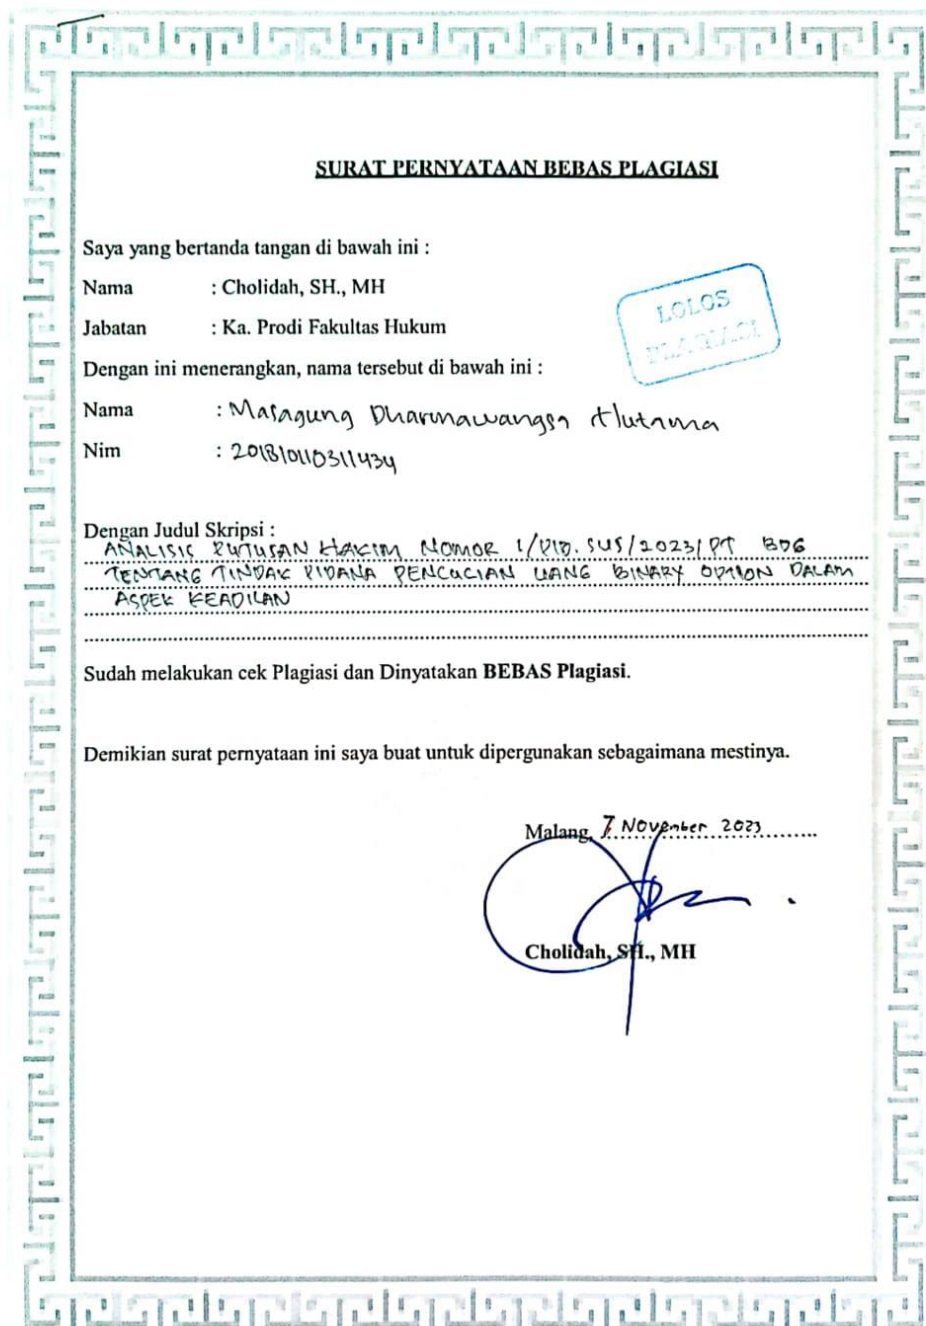 SURAT PERNYATAAN BEBAS PLAGIASI
Saya yang bertanda tangan di bawah ini :
Nama : Cholidah, SH., MH
Jabatan : Ka. Prodi Fakultas Hukum
LOLOS
PLAGIASI
Dengan ini menerangkan, nama tersebut di bawah ini :
Nama : Masagung Dharmawangsa Hutama
Nim : 201810110311434
Dengan Judul Skripsi :
ANALISIS PUTUSAN HAKIM NOMOR 1/PID.SUS/2023/PT BDG
TENTANG TINDAK PIDANA PENCUCIAN UANG BINARY OPTION DALAM
ASPEK KEADILAN
Sudah melakukan cek Plagiasi dan Dinyatakan BEBAS Plagiasi.
Demikian surat pernyataan ini saya buat untuk dipergunakan sebagaimana mestinya.
Malang, 7 November 2023
Cholidah, SH., MH